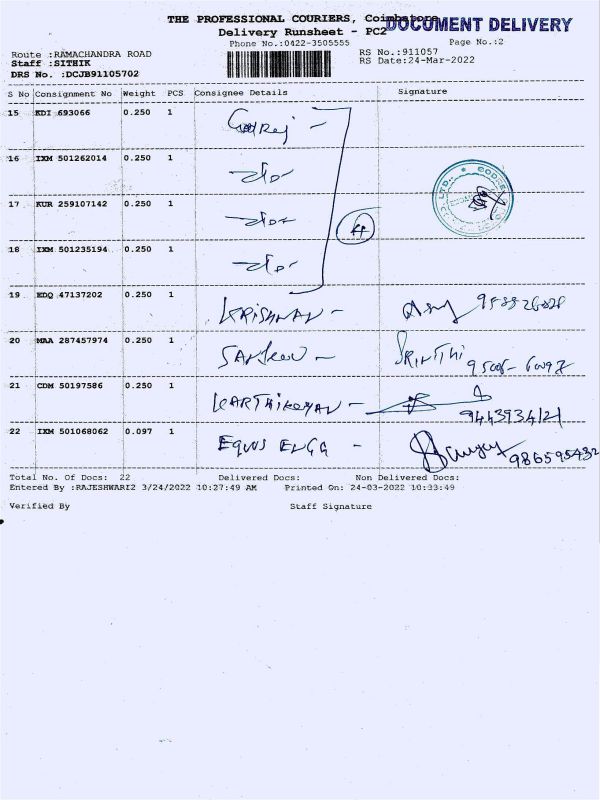 THE PROFESSIONAL COURIERS, Coimbatore
DOCUMENT DELIVERY
Delivery Runsheet - PC2
Phone No.:0422-3505555
Page No.:2
Route :RAMACHANDRA ROAD
RS No.:911057
Staff :SITHIK
RS Date:24-Mar-2022
DRS No. :DCJB91105702
S No Consignment No Weight PCS Consignee Details Signature
15 KDI 693066 0.250 1 Godrej -
16 IXM 501262014 0.250 1 -do-
17 KUR 259107142 0.250 1 -do-
4
18 IXM 501235194 0.250 1 -do-
19 EDQ 47137202 0.250 1 KRISHNAN -
20 MAA 287457974 0.250 1 SANJEEV - SRINTHI
21 CDM 50197586 0.250 1 KARTHIKEYAN -
9443934121
22 IXM 501068062 0.097 1 EQUUS ENGG -
986595432
Total No. Of Docs: 22 Delivered Docs: Non Delivered Docs:
Entered By :RAJESHWARI2 3/24/2022 10:27:49 AM Printed On: 24-03-2022 10:33:49
Verified By Staff Signature